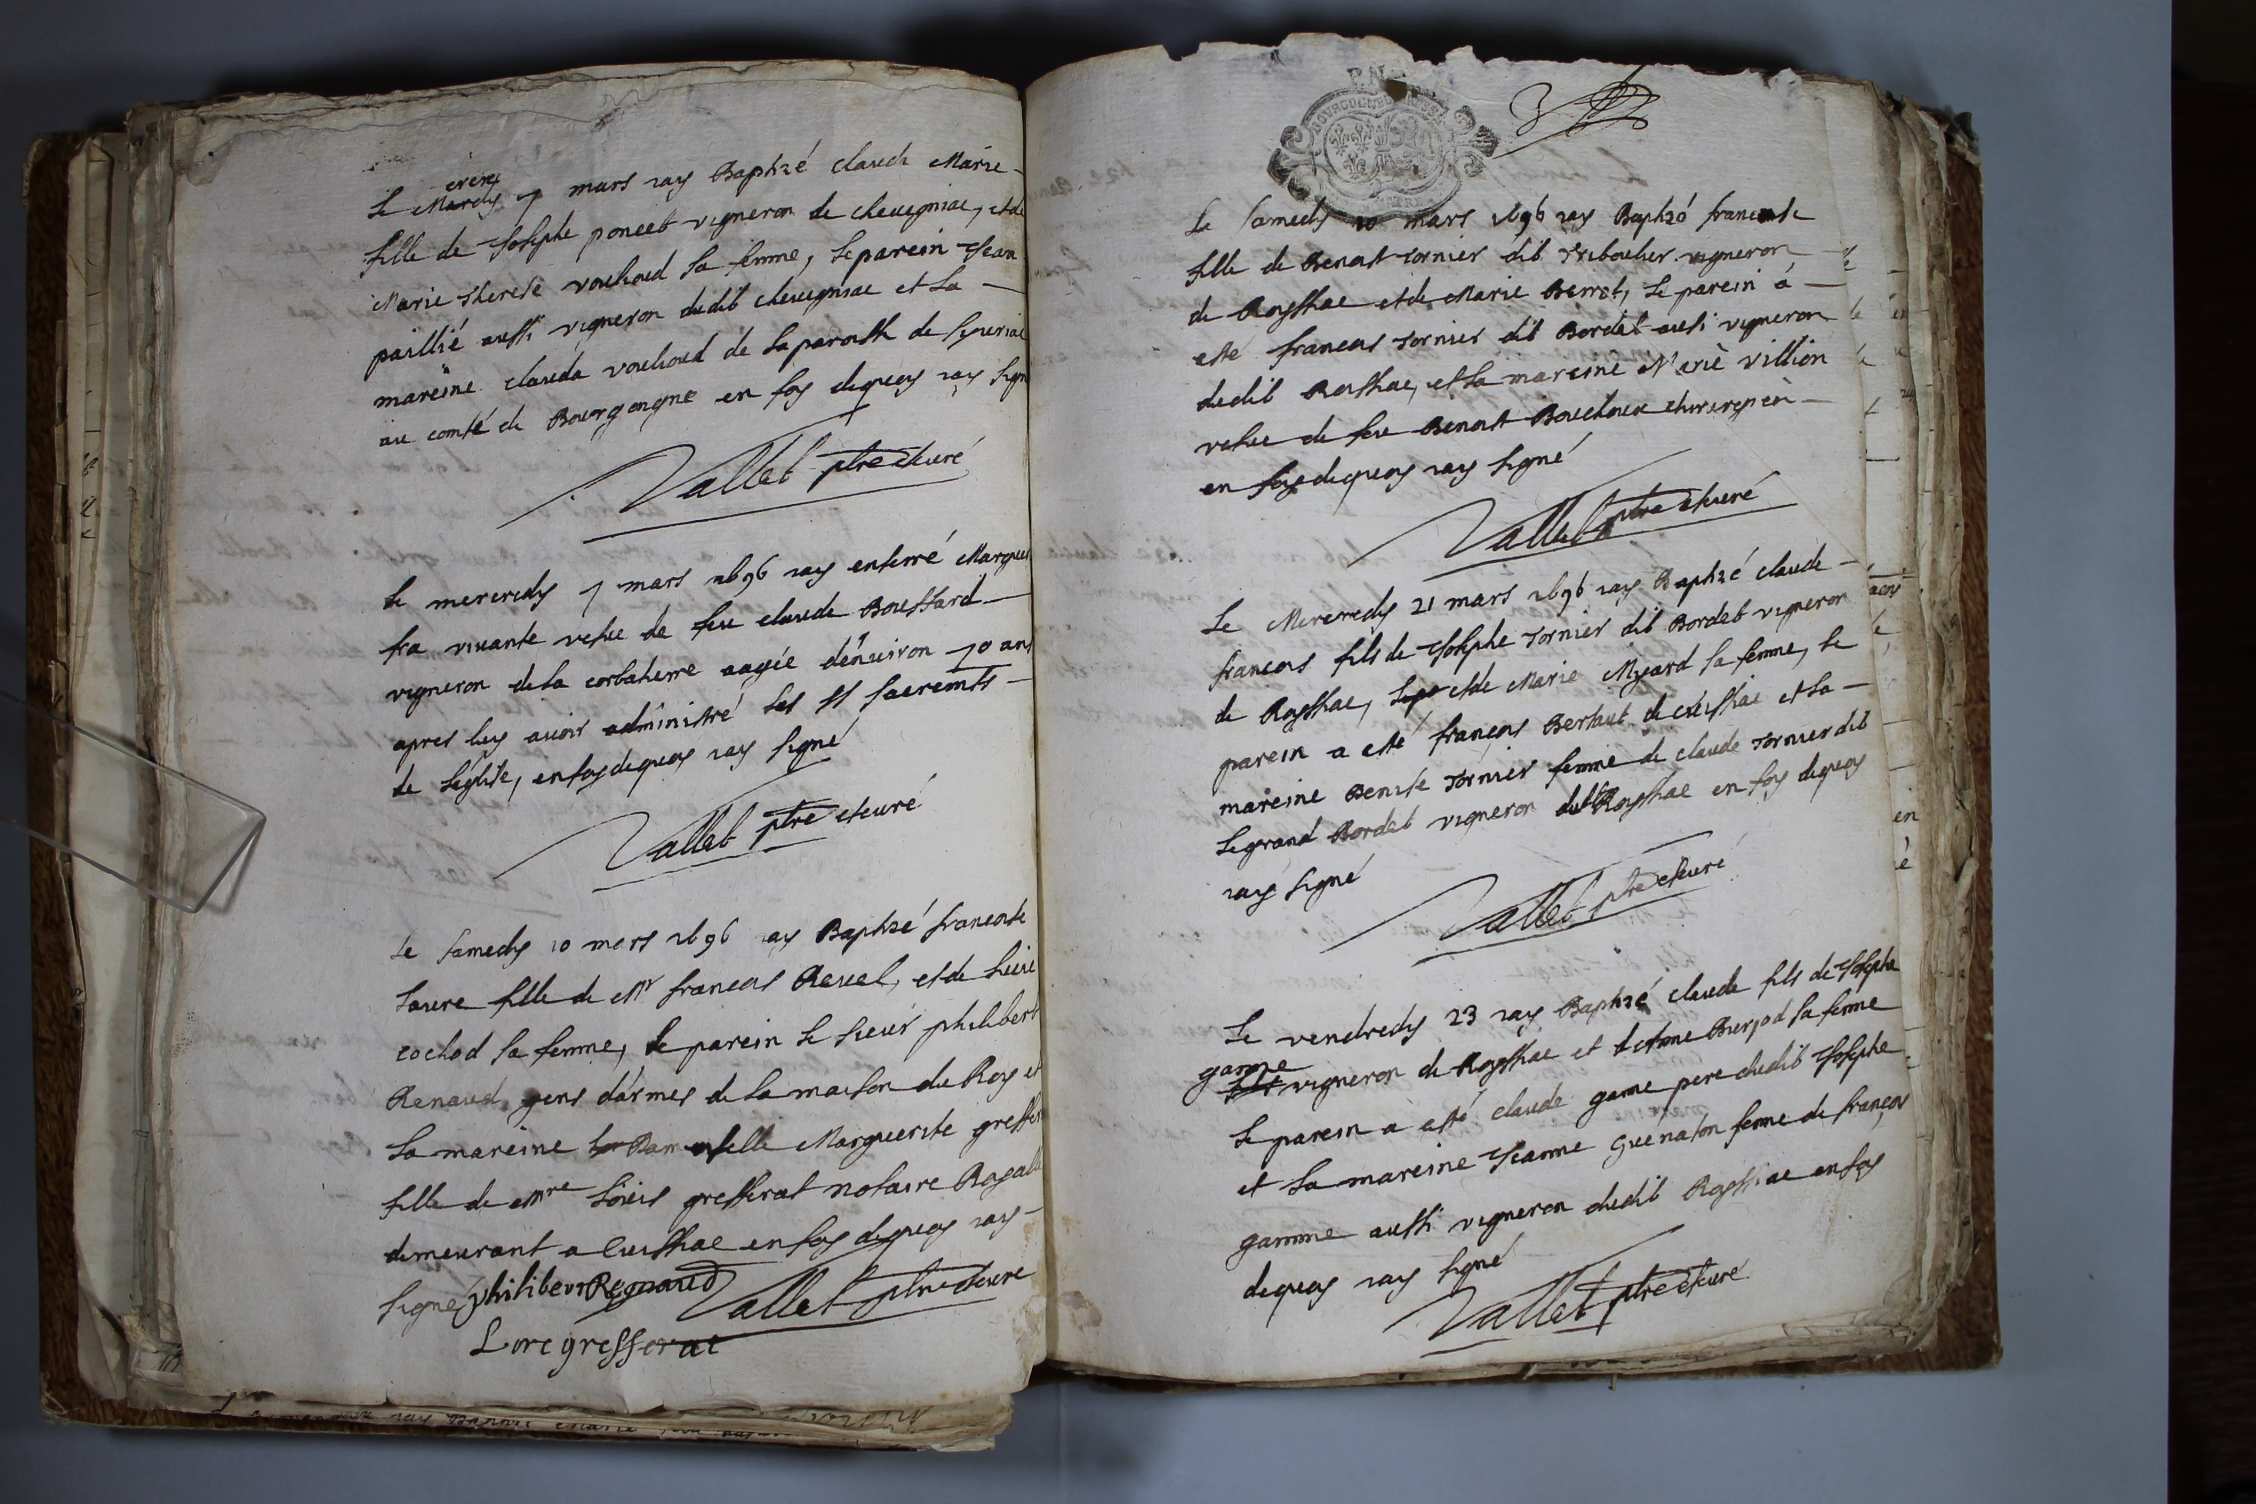 Le Mercredy 7 mars iay Baptizé claude Marie
fille de Joseph poncet vigneron de cheuegniac, et de
Marie Therese vouhoud sa femme, Le parein Jean
paillié aussi vigneron dudit cheuegniac et La
mareine claude vouhoud de La paroisse de
au comté de Bourgongne en foy dequoy iay signé
Vallet ptre et curé
Le mercredy 7 mars 1696 iay enterré
vefue de feu claude Boussard
vigneron de La corbaterre aagée d'enuiron 70 ans
apres luy auoir administré Les SS sacremts
de L'église, en foy dequoy iay signé
Vallet ptre et curé
Le samedy 10 mars 1696 iay Baptizé francoise
Laure fille de Mr francois Reuel, et de
cochod sa femme, Le parein Le sieur philibert
Renaud gens d'armes de La maison du Roy et
La mareine Damoiselle Marguerite gresserat
fille de Mre Loüis gresserat notaire Royal
demeurant a Cuissiae en foy dequoy iay
signé philibert Regnaud Vallet ptre et curé
Lore gresserat
BOURGOGNE
Le samedy 10 mars 1696 iay Baptizé francoise
fille de Benoist Tornier dit Triboulier vigneron
de Roysshae et de Marie Berrot, Le parein à
esté francois Tornier dit Bordet aussi vigneron
dudit Roisshae, et La mareine Marie Villion
vefue de feu Benoist Bouchoux chirurgien
en foy dequoy iay signé
Vallet ptre et curé
Le Mercredy 21 mars 1696 iay Baptizé claude
francois fils de Joseph Tornier dit Bordet vigneron
de Roysshae, et de Marie Myard sa femme, Le
parein a esté françois Bertaut de cuisshae et La
mareine Benoiste Tornier femme de claude Tornier dit
Le grand Bordet vigneron dudit Roysshae en foy dequoy
iay signé
Vallet ptre et curé
Le vendredy 23 iay Baptizé claude fils de Joseph
game vigneron de Roysshae et d'etiene Burjod sa femme
Le parein a esté claude game pere dudit Joseph
et La mareine Jeanne Guenason femme de françois
gamme aussi vigneron dudit Roysshae en foy
dequoy iay signé
Vallet ptre et curé